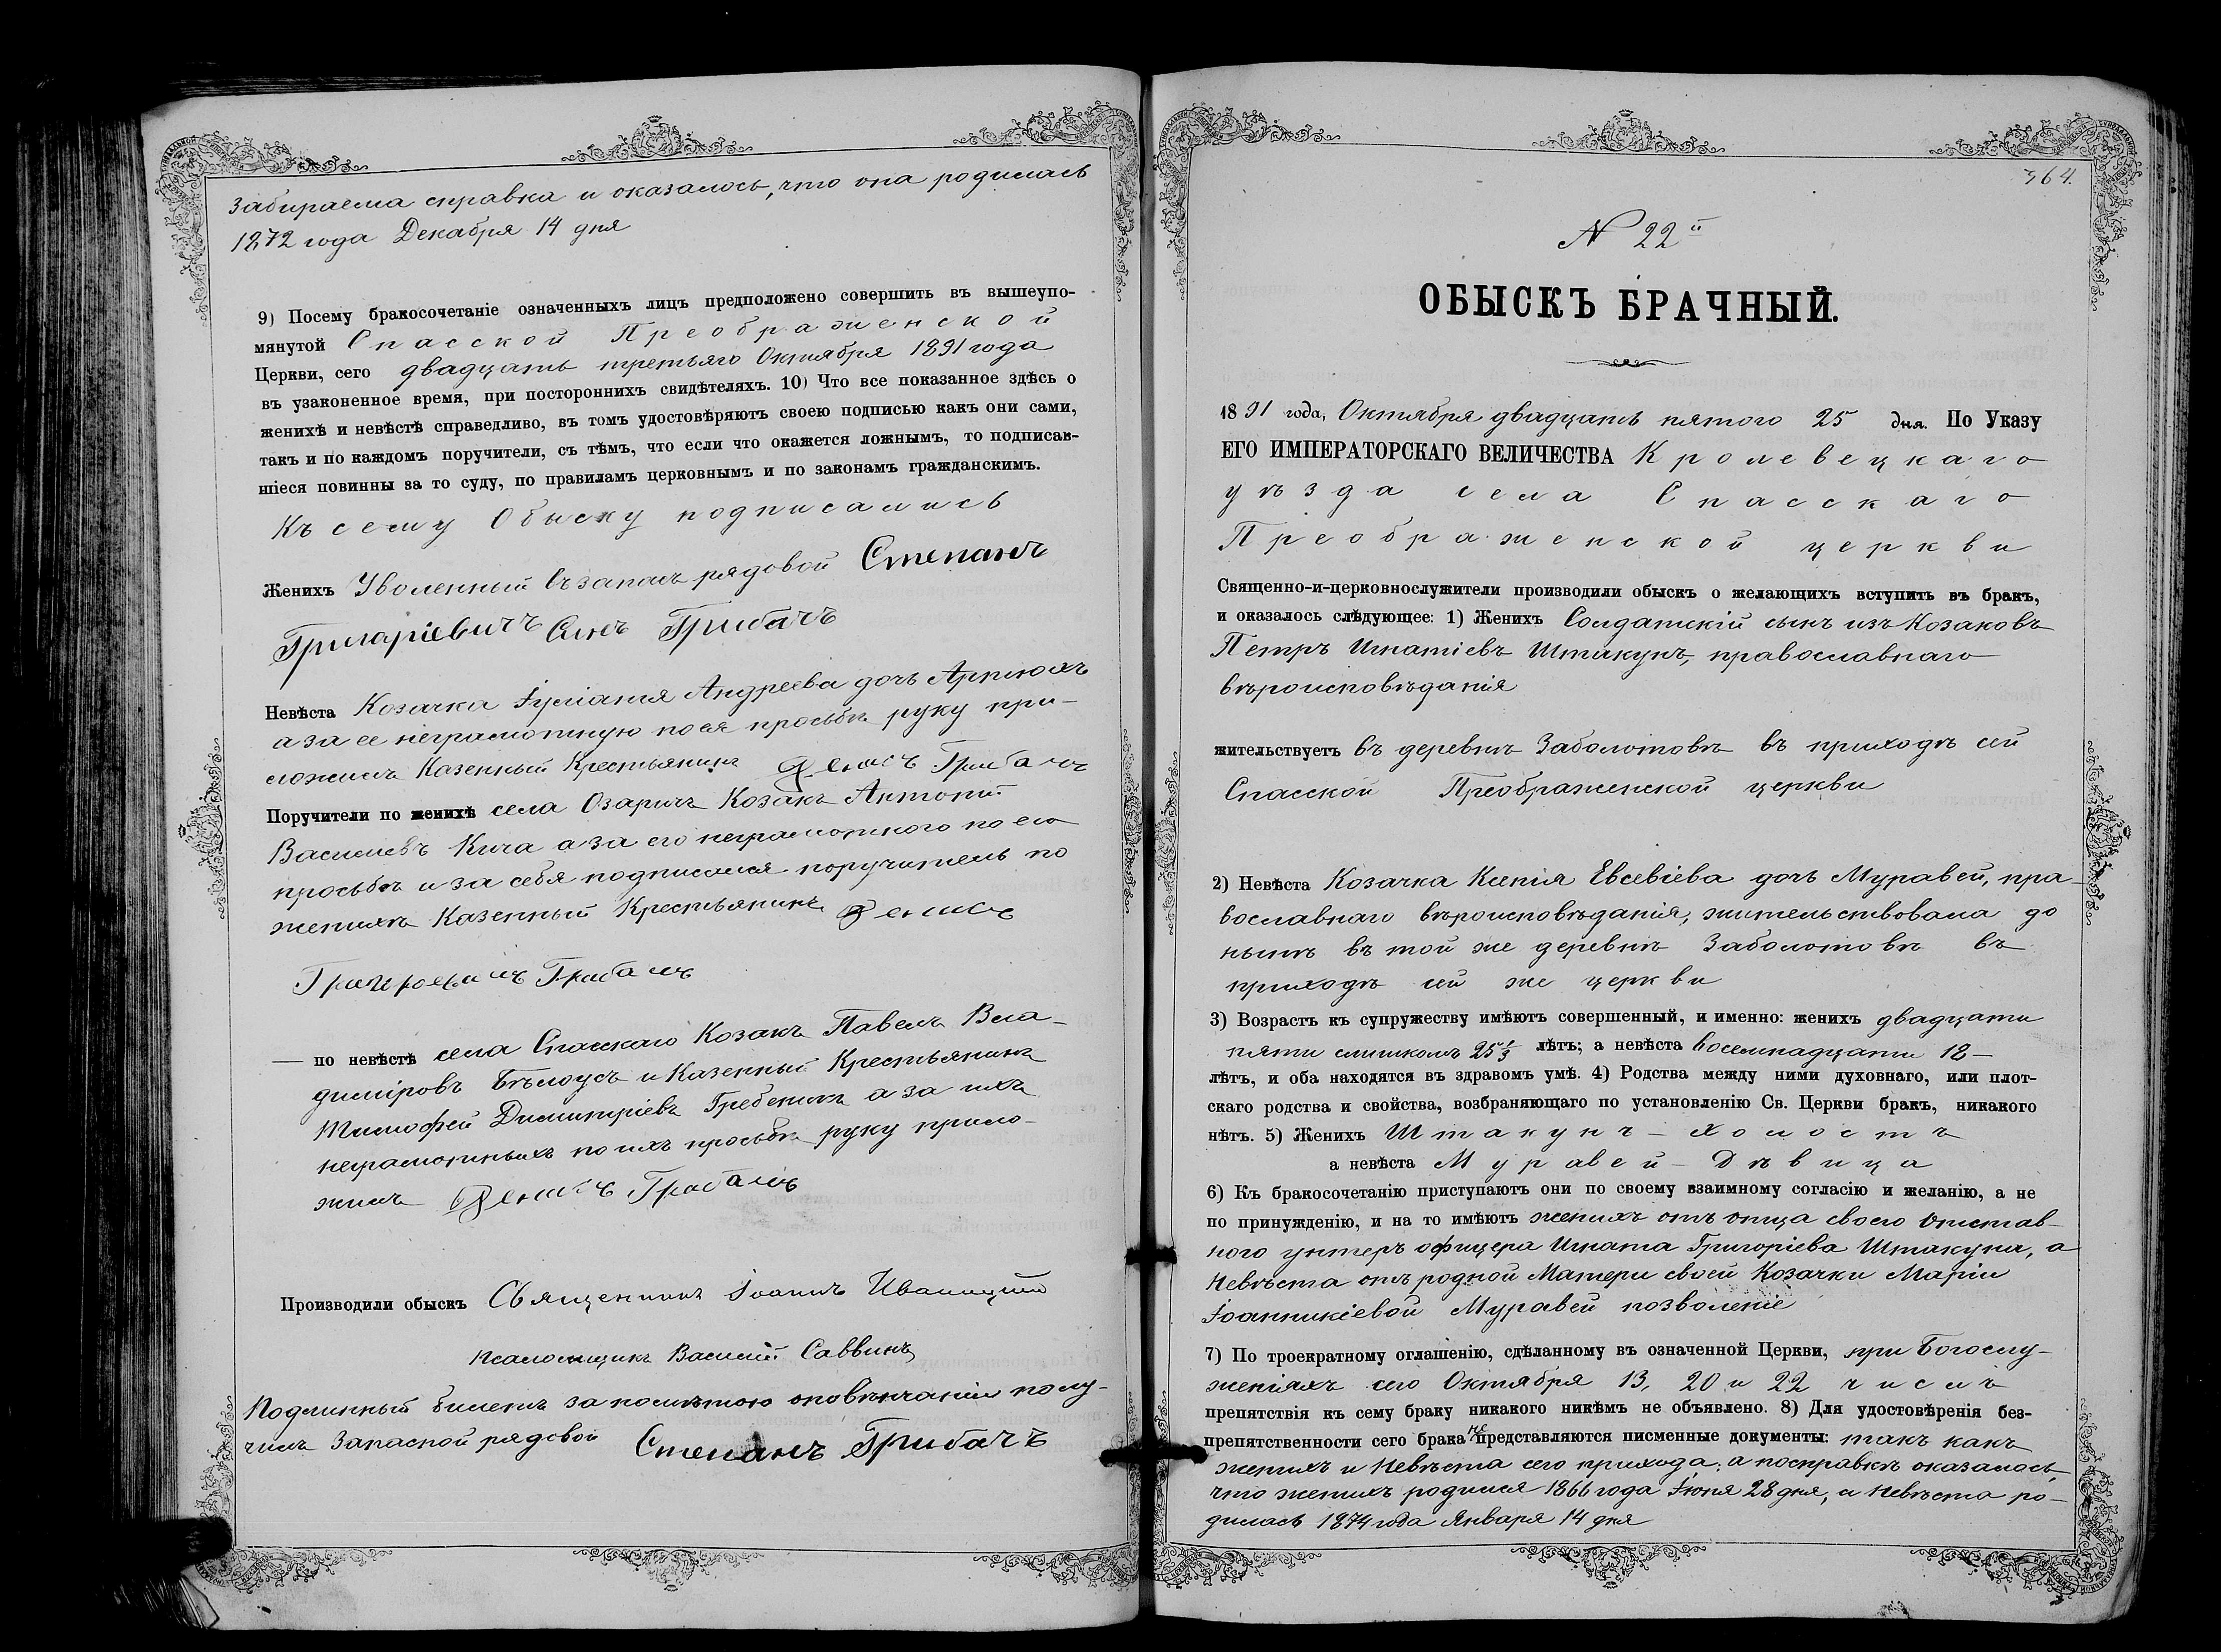 забираема справка и оказалось, что она родилась
1872 года Декабря 14 дня
9) Посему бракосочетаніе означенныхъ лицъ предположено совершить въ вышеупо-
мянутой Спасской Преображенской
Церкви, сего двадцать третьяго Октября 1891 года
въ узаконенное время, при постороннихъ свидѣтеляхъ. 10) Что все показанное здѣсь о
женихѣ и невѣстѣ справедливо, въ томъ удостовѣряютъ своею подписью какъ они сами,
такъ и по каждомъ поручители, съ тѣмъ, что если что окажется ложнымъ, то подписав-
шіеся повинны за то суду, по правиламъ церковнымъ и по законамъ гражданскимъ.
Къ сему Обыску подписались
Женихъ Уволенный въ запасъ рядовой Степанъ
Григаріевичъ Синъ Грибачъ
Невѣста Козачка Іуліанія Андреева дочь
а за ее неграмотную по ея просьбѣ руку при-
ложилъ Казенный Крестьянинъ Денисъ Грибачъ
Поручители по женихѣ села Озаричъ Козакъ Антоній
Васильевъ Кича а за его неграмотного по его
просьбѣ и за себя подписался поручитель по
женихѣ Казенный Крестьянинъ Денисъ
Грибачъ
— по невѣстѣ села Спасскаго Козакъ Павелъ Вла-
диміровъ Бѣлоусъ и Казенный Крестьянинъ
Тимофей Димитріевъ Гребеникъ а за ихъ
неграмотныхъ по ихъ просьбѣ руку прило-
жилъ Денисъ Грибачъ
Производили обыскъ Священникъ Іоаннъ Иваницкій
псаломщикъ Василій Саввинъ
Подлинный билетъ за помѣтою оповѣнчаніи полу-
чилъ Запасной рядовой Степанъ Грибачъ
364.
N 22й
ОБЫСКЪ БРАЧНЫЙ.
1891 года, Октября двадцать пятого 25 дня. По Указу
ЕГО ИМПЕРАТОРСКАГО ВЕЛИЧЕСТВА Кролевецкаго
уѣзда села Спасскаго
Преображенской церкви
Священно-и-церковнослужители производили обыскъ о желающихъ вступить въ бракъ,
и оказалось слѣдующее: 1) Женихъ Солдатскій сынъ изъ Козаковъ
Петръ Игнатіевъ Штакунъ, православнаго
вѣроисповѣданія
жительствуетъ въ деревнѣ Заболотовѣ въ приходѣ сей
Спасской Преображенской церкви
2) Невѣста Козачка Ксенія Евсевіева дочь Муравей, пра-
вославнаго вѣроисповѣданія, жительствовала до
нынѣ въ той же деревнѣ Заболотовѣ въ
приходѣ сей же церкви
3) Возрастъ къ супружеству имѣютъ совершенный, и именно: женихъ двадцати
пяти слишкомъ 25 1/3 лѣтъ; а невѣста восемнадцати 18 —
лѣтъ, и оба находятся въ здравомъ умѣ. 4) Родства между ними духовнаго, или плот-
скаго родства и свойства, возбраняющаго по установленію Св. Церкви бракъ, никакого
нѣтъ. 5) Женихъ Штакунъ — холостъ
а невѣста Муравей — Дѣвица
6) Къ бракосочетанію приступаютъ они по своему взаимному согласію и желанію, а не
по принужденію, и на то имѣютъ женихъ отъ отца своего отстав-
ного унтеръ офицера Игната Григоріева Штакуна, а
Невѣста отъ родной Матери своей Козачки Маріи
Іоанникіевой Муравей позволеніе
7) По троекратному оглашенію, сдѣланному въ означенной Церкви, при Богослу-
женіяхъ сего Октября 13, 20 и 22 числъ
препятствія къ сему браку никакого никѣмъ не объявлено. 8) Для удостовѣренія без-
препятственности сего брака не представляются писменные документы: такъ какъ
женихъ и Невѣста сего прихода: а посправкѣ оказалось,
что женихъ родился 1866 года Іюня 28 дня, а Невѣста ро-
дилась 1874 года Января 14 дня